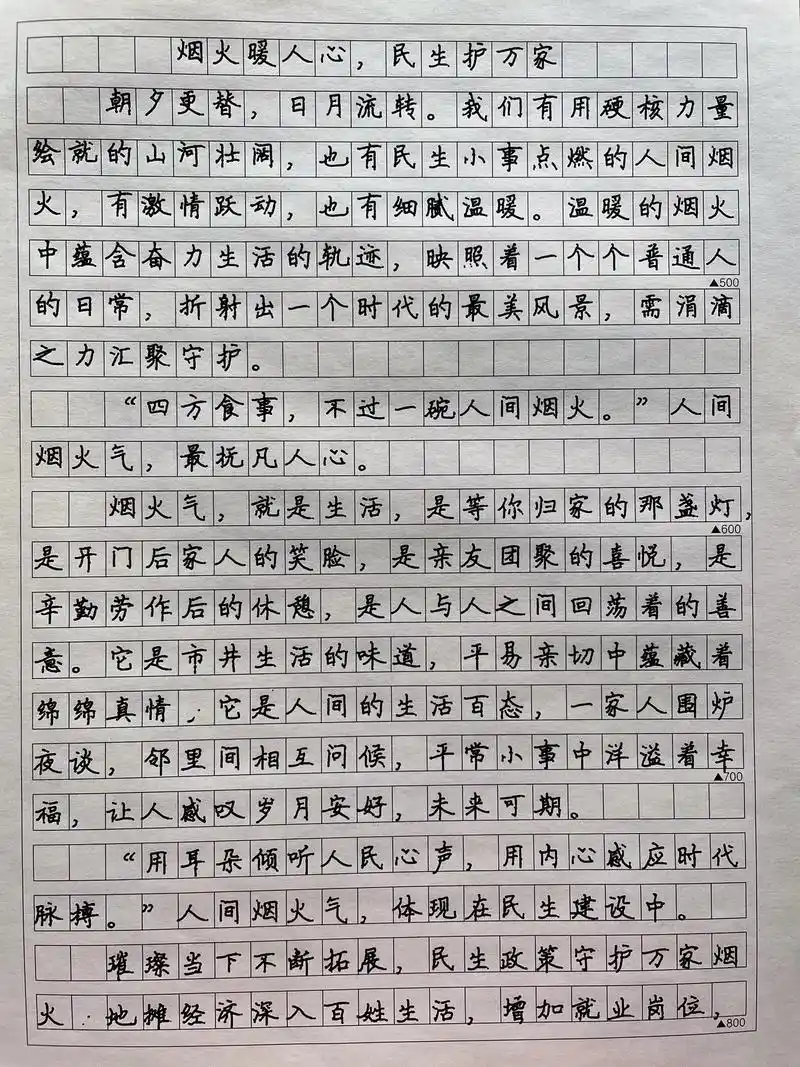 烟火暖人心，民生护万家
朝夕更替，日月流转。我们有用硬核力量
绘就的山河壮阔，也有民生小事点燃的人间烟
火，有激情跃动，也有细腻温暖。温暖的烟火
中蕴含奋力生活的轨迹，映照着一个个普通人
▲500
的日常，折射出一个时代的最美风景，需涓滴
之力汇聚守护。
“四方食事，不过一碗人间烟火。”人间
烟火气，最抚凡人心。
烟火气，就是生活，是等你归家的那盏灯，
▲600
是开门后家人的笑脸，是亲友团聚的喜悦，是
辛勤劳作后的休憩，是人与人之间回荡着的善
意。它是市井生活的味道，平易亲切中蕴藏着
绵绵真情；它是人间的生活百态，一家人围炉
夜谈，邻里间相互问候，平常小事中洋溢着幸
▲700
福，让人感叹岁月安好，未来可期。
“用耳朵倾听人民心声，用内心感应时代
脉搏。”人间烟火气，体现在民生建设中。
璀璨当下不断拓展，民生政策守护万家烟
火：地摊经济深入百姓生活，增加就业岗位，
▲800